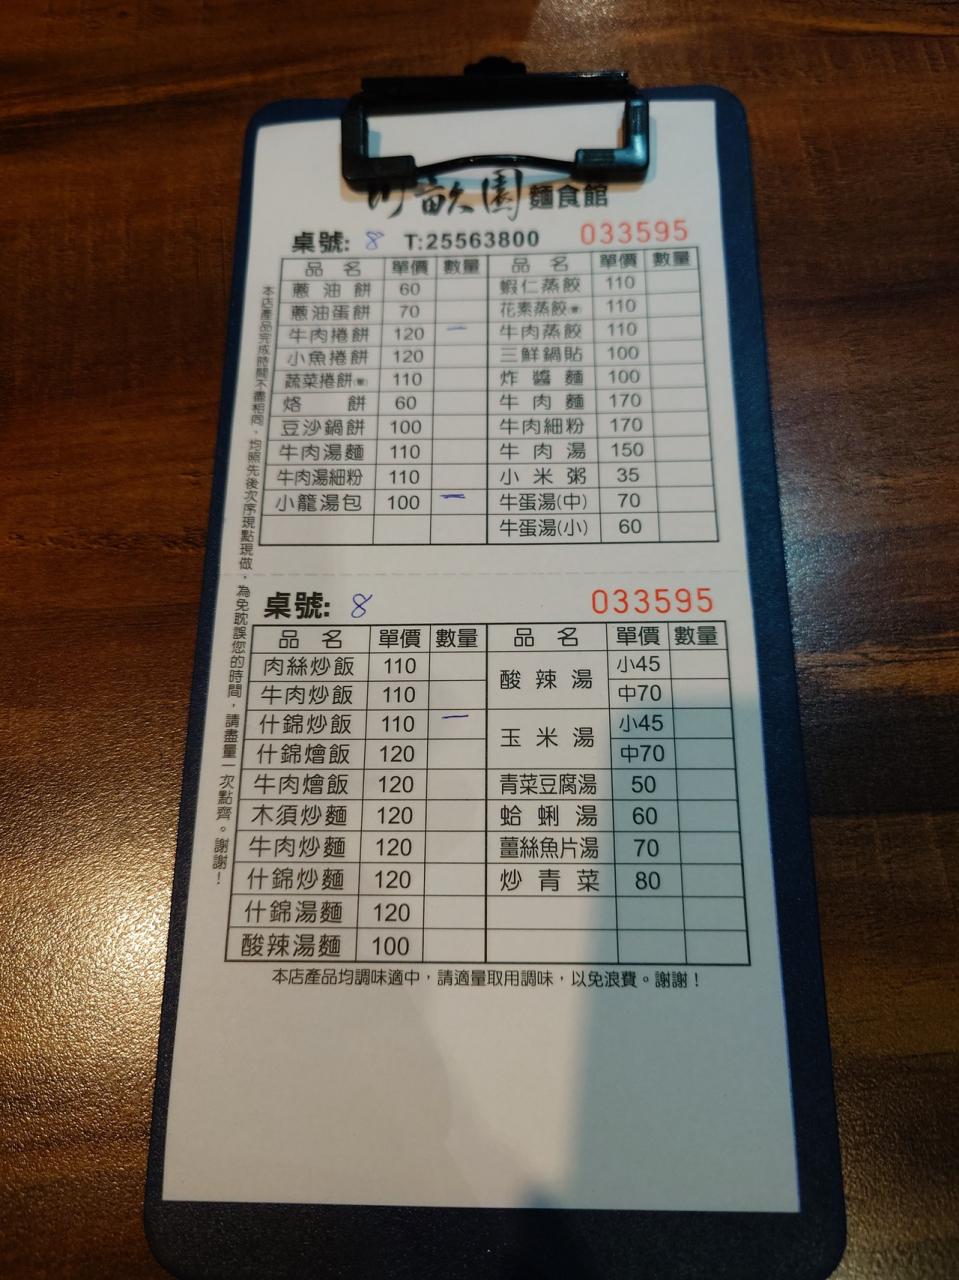 川畝園麵食館
桌號: 8 T:25563800 033595
品名 單價 數量 品名 單價 數量
蔥油餅 60 蝦仁蒸餃 110
蔥油蛋餅 70 花素蒸餃 110
牛肉捲餅 120 一 牛肉蒸餃 110
小魚捲餅 120 三鮮鍋貼 100
蔬菜捲餅 110 炸醬麵 100
烙餅 60 牛肉麵 170
豆沙鍋餅 100 牛肉細粉 170
牛肉湯麵 110 牛肉湯 150
牛肉湯細粉 110 小米粥 35
小籠湯包 100 一 牛蛋湯(中) 70
牛蛋湯(小) 60
桌號: 8 033595
品名 單價 數量 品名 單價 數量
肉絲炒飯 110 酸辣湯 小45
牛肉炒飯 110 中70
什錦炒飯 110 一 玉米湯 小45
什錦燴飯 120 中70
牛肉燴飯 120 青菜豆腐湯 50
木須炒麵 120 蛤蜊湯 60
牛肉炒麵 120 薑絲魚片湯 70
什錦炒麵 120 炒青菜 80
什錦湯麵 120
酸辣湯麵 100
本店產品均調味適中，請適量取用調味，以免浪費。謝謝！
本店產品完成時間不盡相同、均照先後次序現點現做，為免耽誤您的時間，請盡量一次點齊。謝謝！